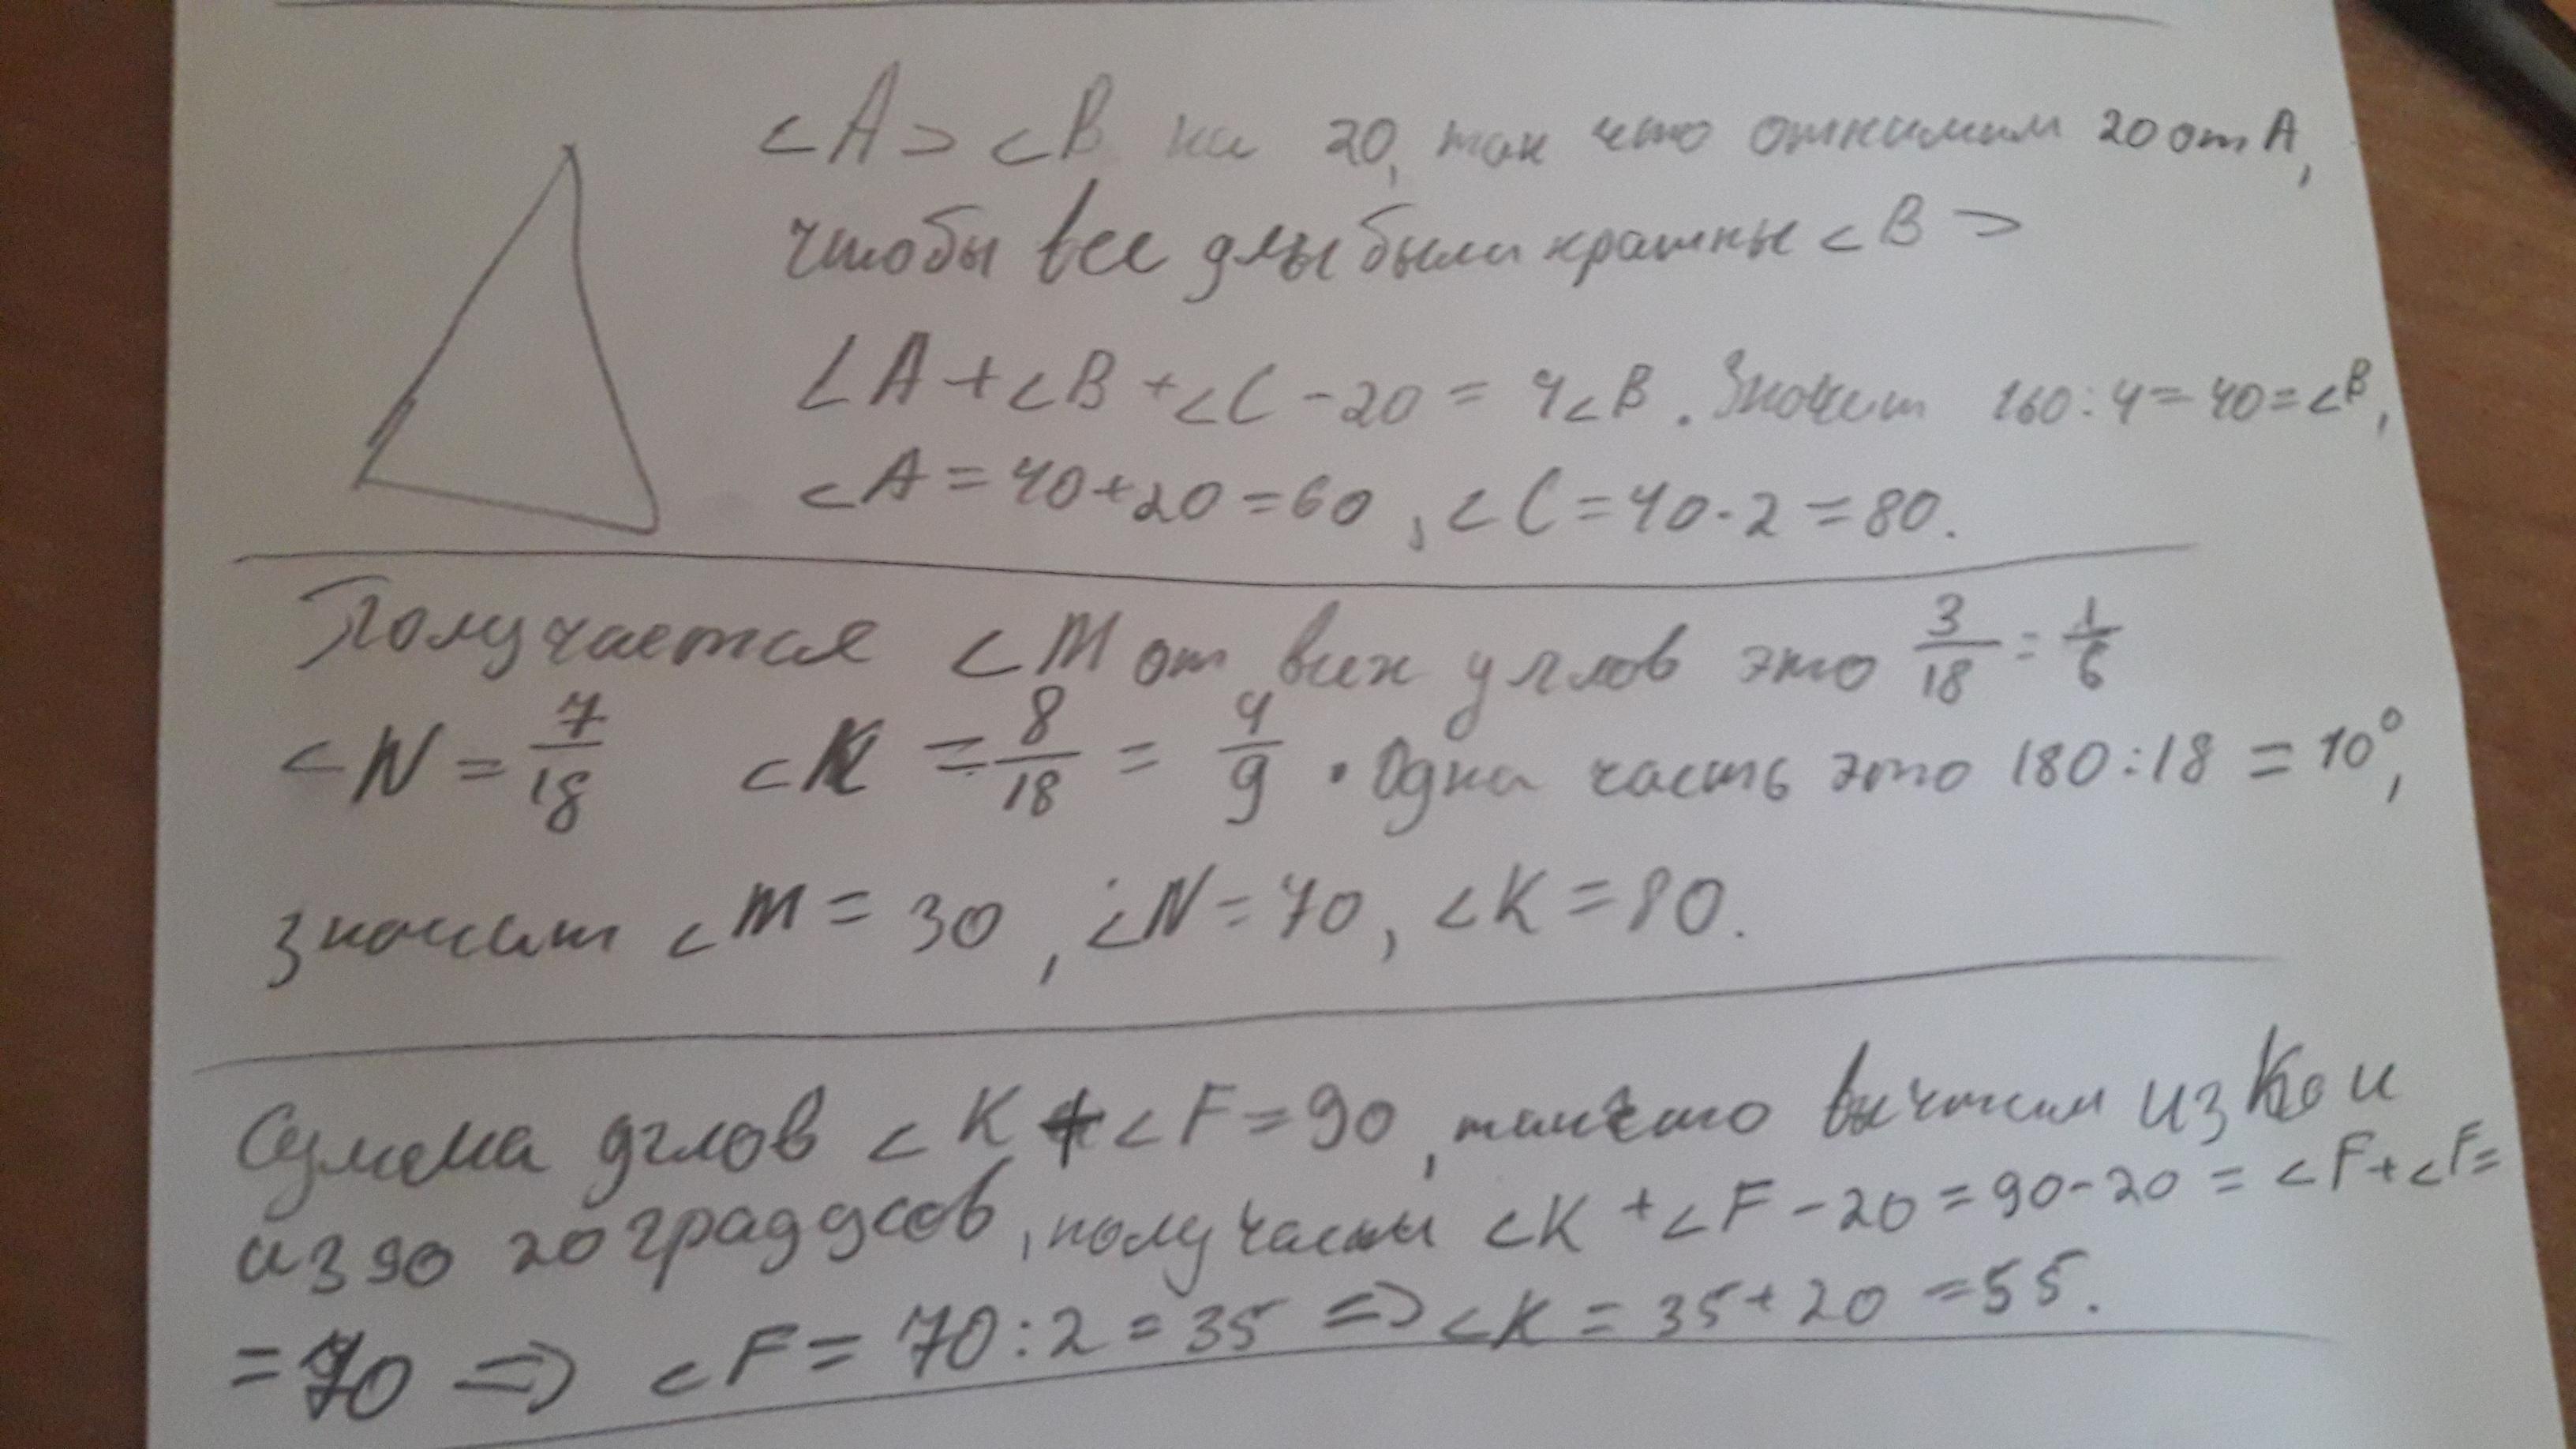 ∠A > ∠B на 20, так что отнимим 20 от A,
чтобы все углы были кратны ∠B =>
∠A + ∠B + ∠C - 20 = 4∠B. Значит 160 : 4 = 40 = ∠B,
∠A = 40 + 20 = 60, ∠C = 40 · 2 = 80.
Получается ∠M от всех углов это 3/18 = 1/6
∠N = 7/18 ∠K = 8/18 = 4/9. Одна часть это 180 : 18 = 10°,
значит ∠M = 30, ∠N = 70, ∠K = 80.
Сумма углов ∠K + ∠F = 90, так что вычтим из K и
из 90 20 градусов, получаем ∠K + ∠F - 20 = 90 - 20 = ∠F + ∠F =
= 70 => ∠F = 70 : 2 = 35 => ∠K = 35 + 20 = 55.